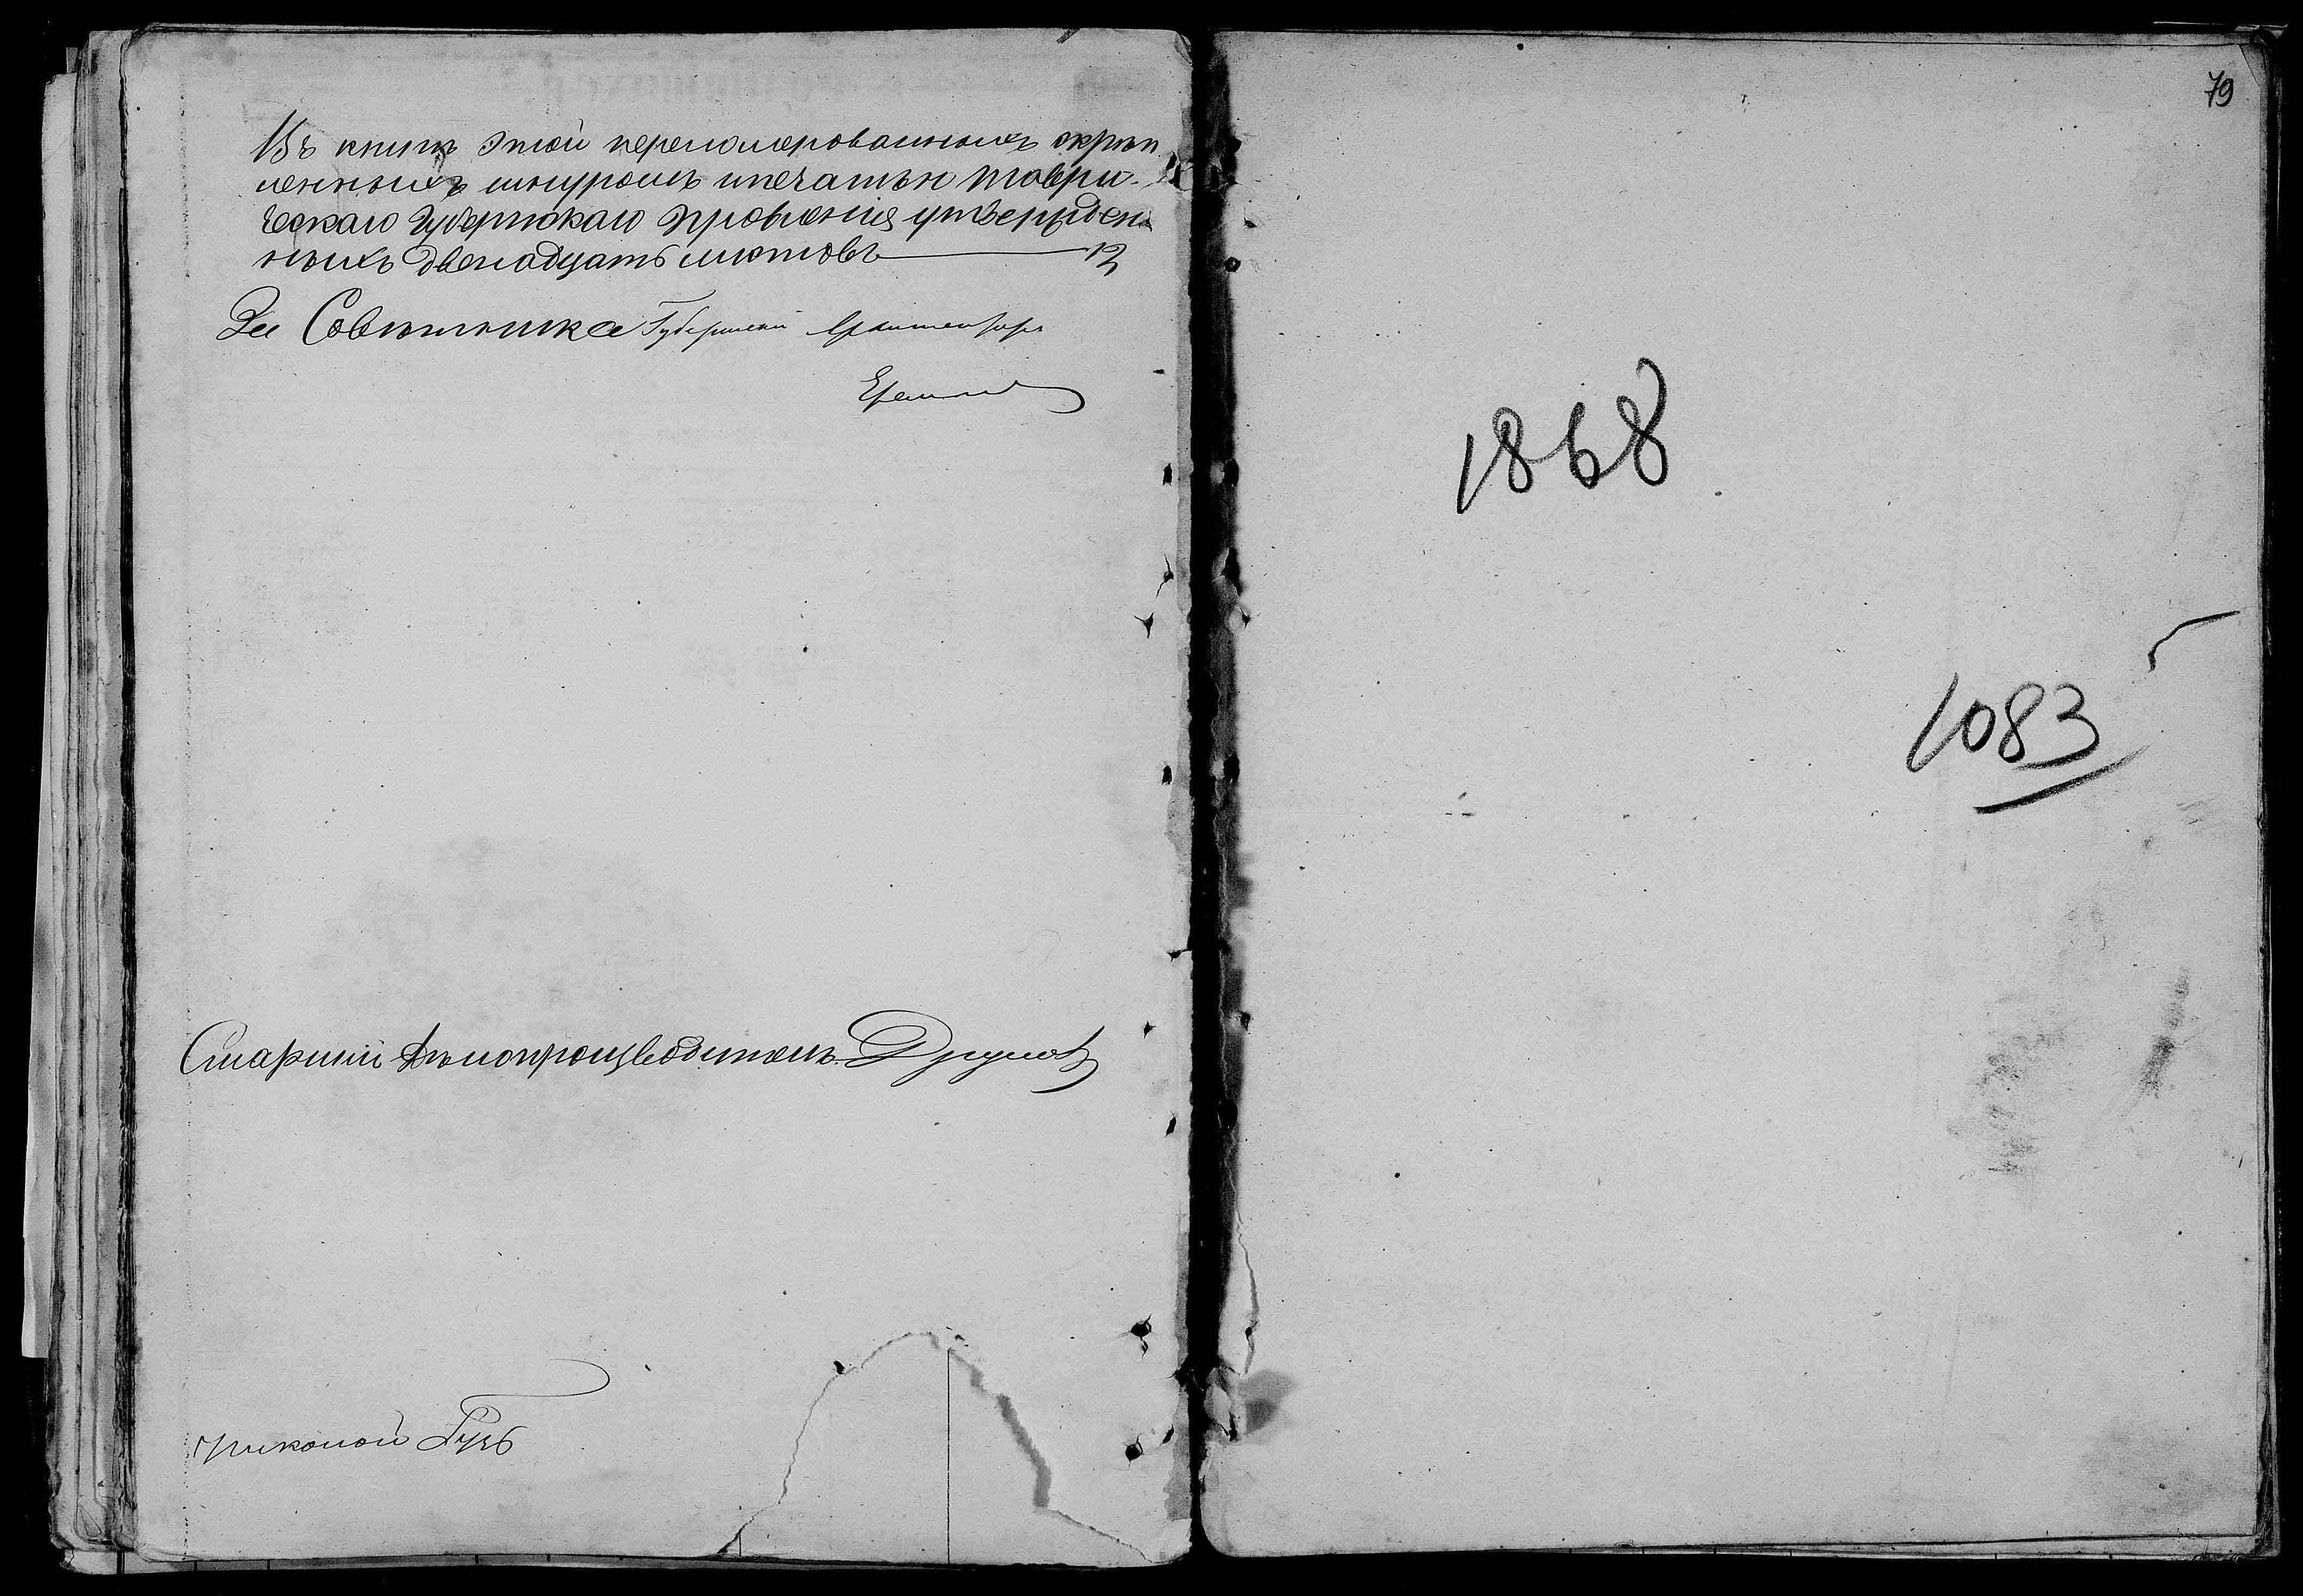 Въ книгѣ этой перенумерованныхъ скрѣп
ленныхъ шнуромъ и печатью Таври-
ческаго Губернскаго Правленія утвержден
ныхъ двенадцать листовъ 12
За Совѣтника Губернскій Архитекторъ
Старшій Дѣлопроизводитель
79
1868
1083